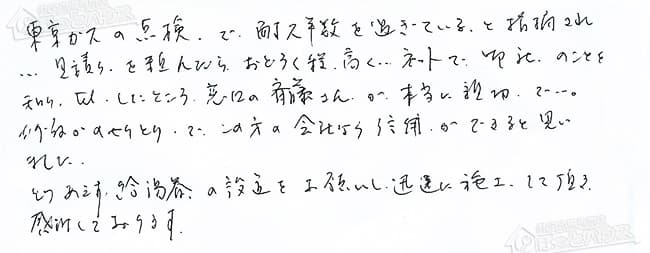 東京ガスの点検.で.耐久年数を過ぎている.と指摘され
…見積り.を頼んだら.おどろく程.高く…ネットで.御社.のことを
知り.TEL.したところ.窓口の斉藤さん.が.本当に親切.で…。
何度かのやりとり.で.この方の会社なら信頼.ができると思い
ました.
とりあえず.給湯器.の設置をお願いし迅速に施工.して頂き.
感謝しております.